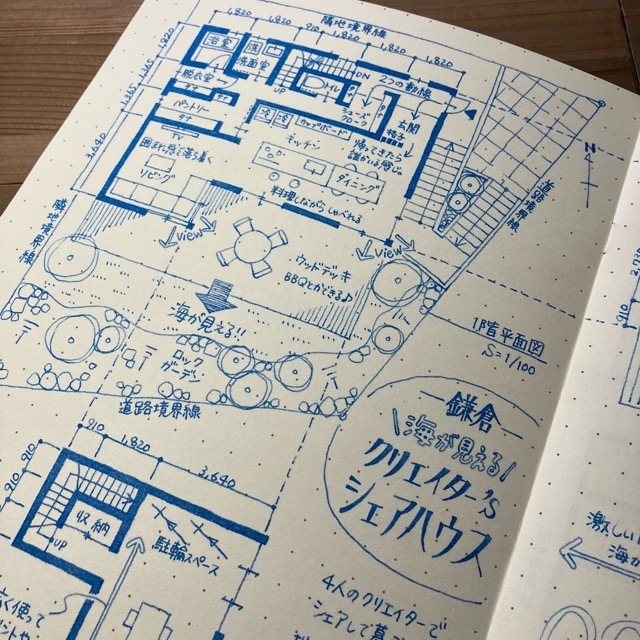 隣地境界線
1,820
1,820
910
1,820
1,820
1,820
1,365
1,365
3,640
浴室
洗
洗面室
UP
トイレ
DN
2つの動線
脱衣室
タナ
パントリー
タナ
TV
玄関
タナ
格子
冷
カップボード
キッチン
帰ってきたら
囲まれ感で落ち着く
リビング
ダイニング
料理しながらしゃべれる
view
view
ウッドデッキ
BBQとかできる♪
海が見える!!
ロック
ガーデン
隣地境界線
道路境界線
道路境界線
N
1階平面図
S=1/100
鎌倉
海が見える!
クリエイター's
シェアハウス
910
1,820
3,640
910
910
収納
UP
駐輪スペース
4人のクリエイターで
シェアして暮
広く使って
激しい
海が